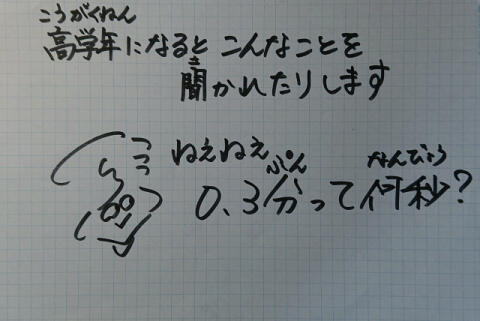 こうがくねん
高学年になると こんなことを
き
聞かれたりします
ねぇねぇ
ぷん なんびょう
0.3分って何秒?